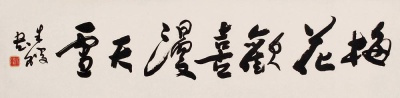 梅花歡喜漫天雪